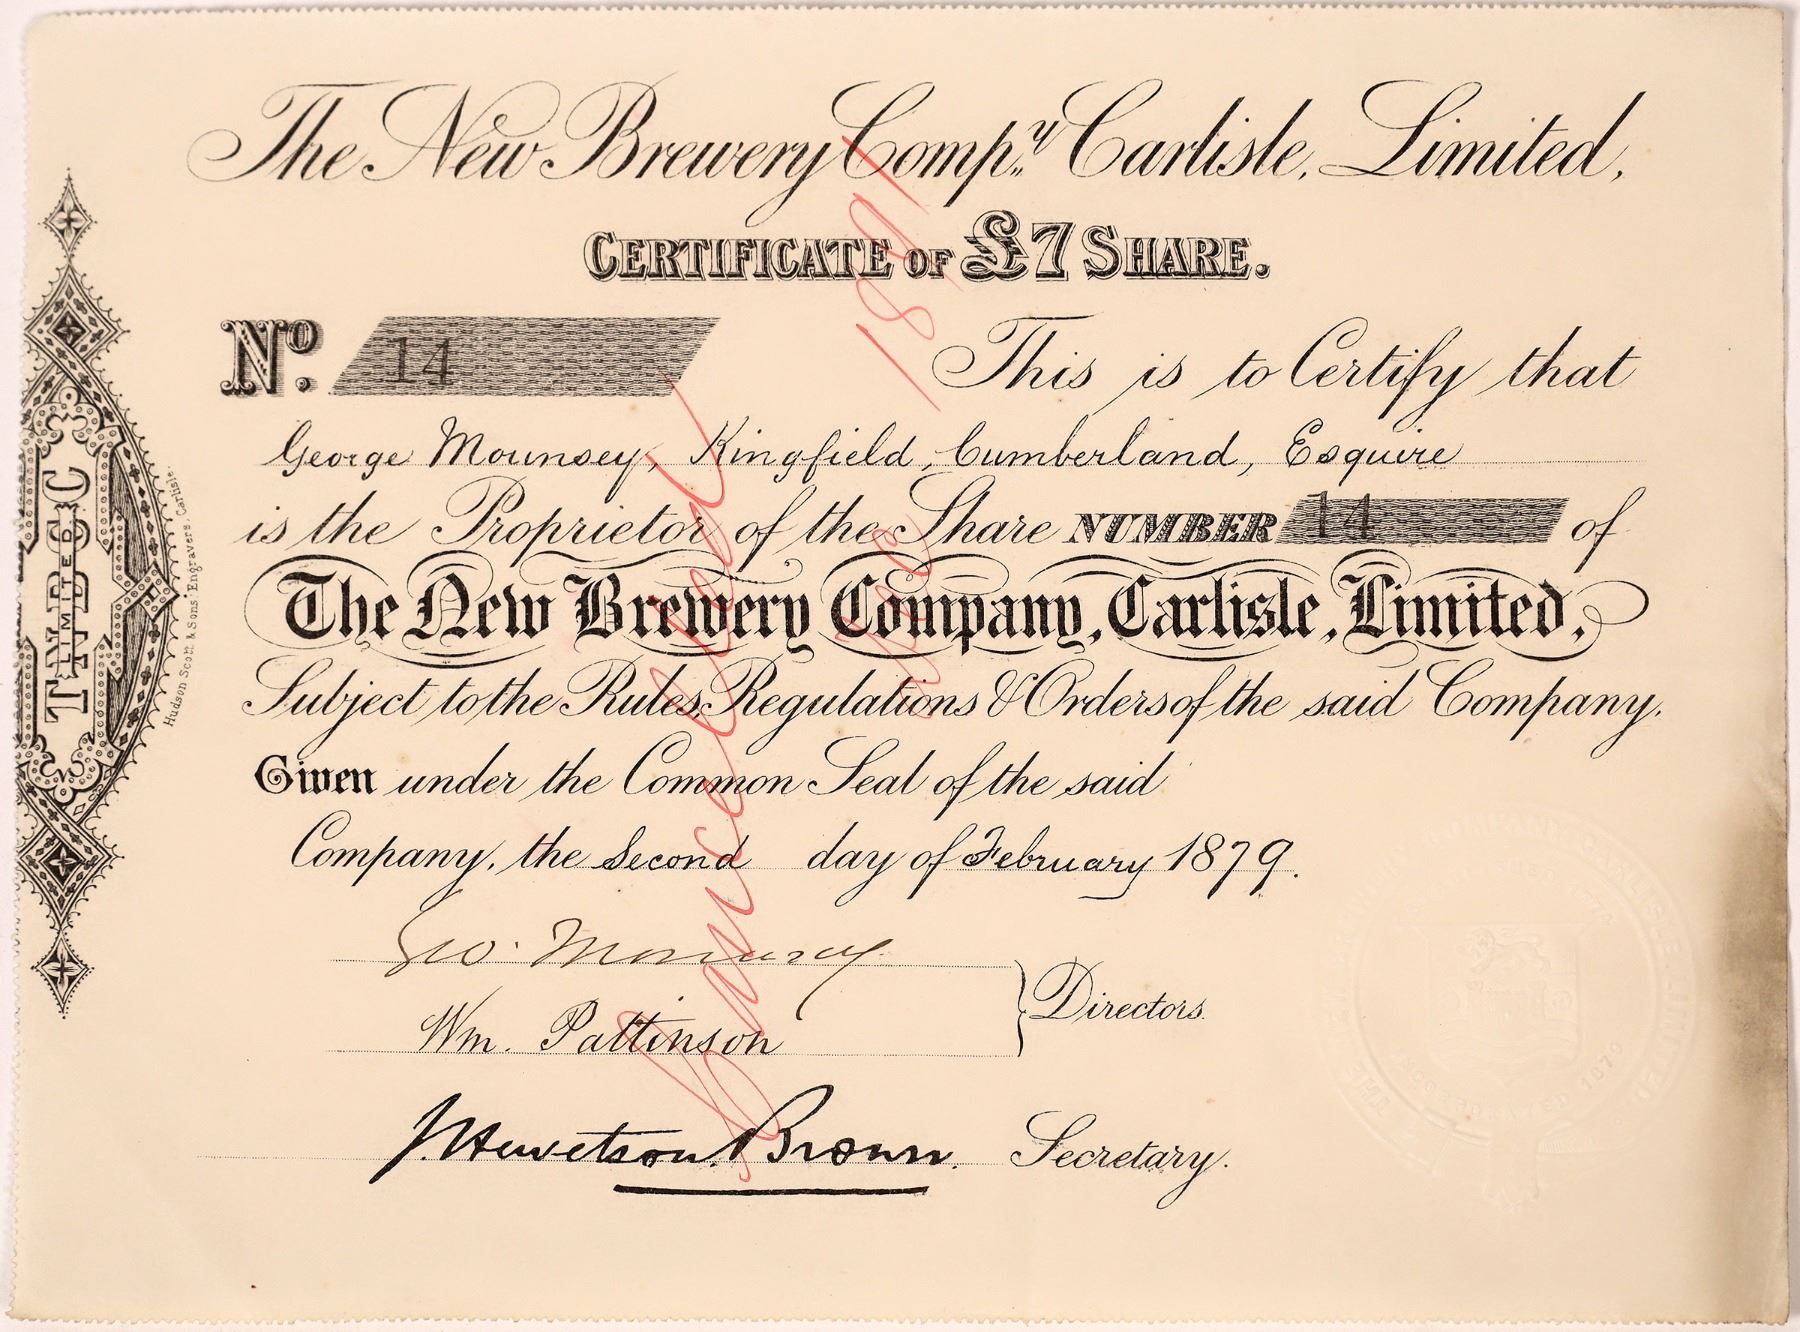 The New Brewery Compy. Carlisle, Limited,
CERTIFICATE OF £7 SHARE.
No. 14
This is to Certify that
George Mounsey, Kingfield, Cumberland, Esquire
is the Proprietor of the Share NUMBER 14 of
The New Brewery Company, Carlisle, Limited,
Subject to the Rules, Regulations & Orders of the said Company.
Given under the Common Seal of the said
Company, the Second day of February 1879.
Geo. Mounsey
Wm. Pattinson
Directors.
J. Hewetson Brown. Secretary.
Cancelled
1891
TNBCC
LIMITED
Hudson Scott & Sons, Engravers, Carlisle.
THE NEW BREWERY COMPANY, CARLISLE, LIMITED
INCORPORATED 1879